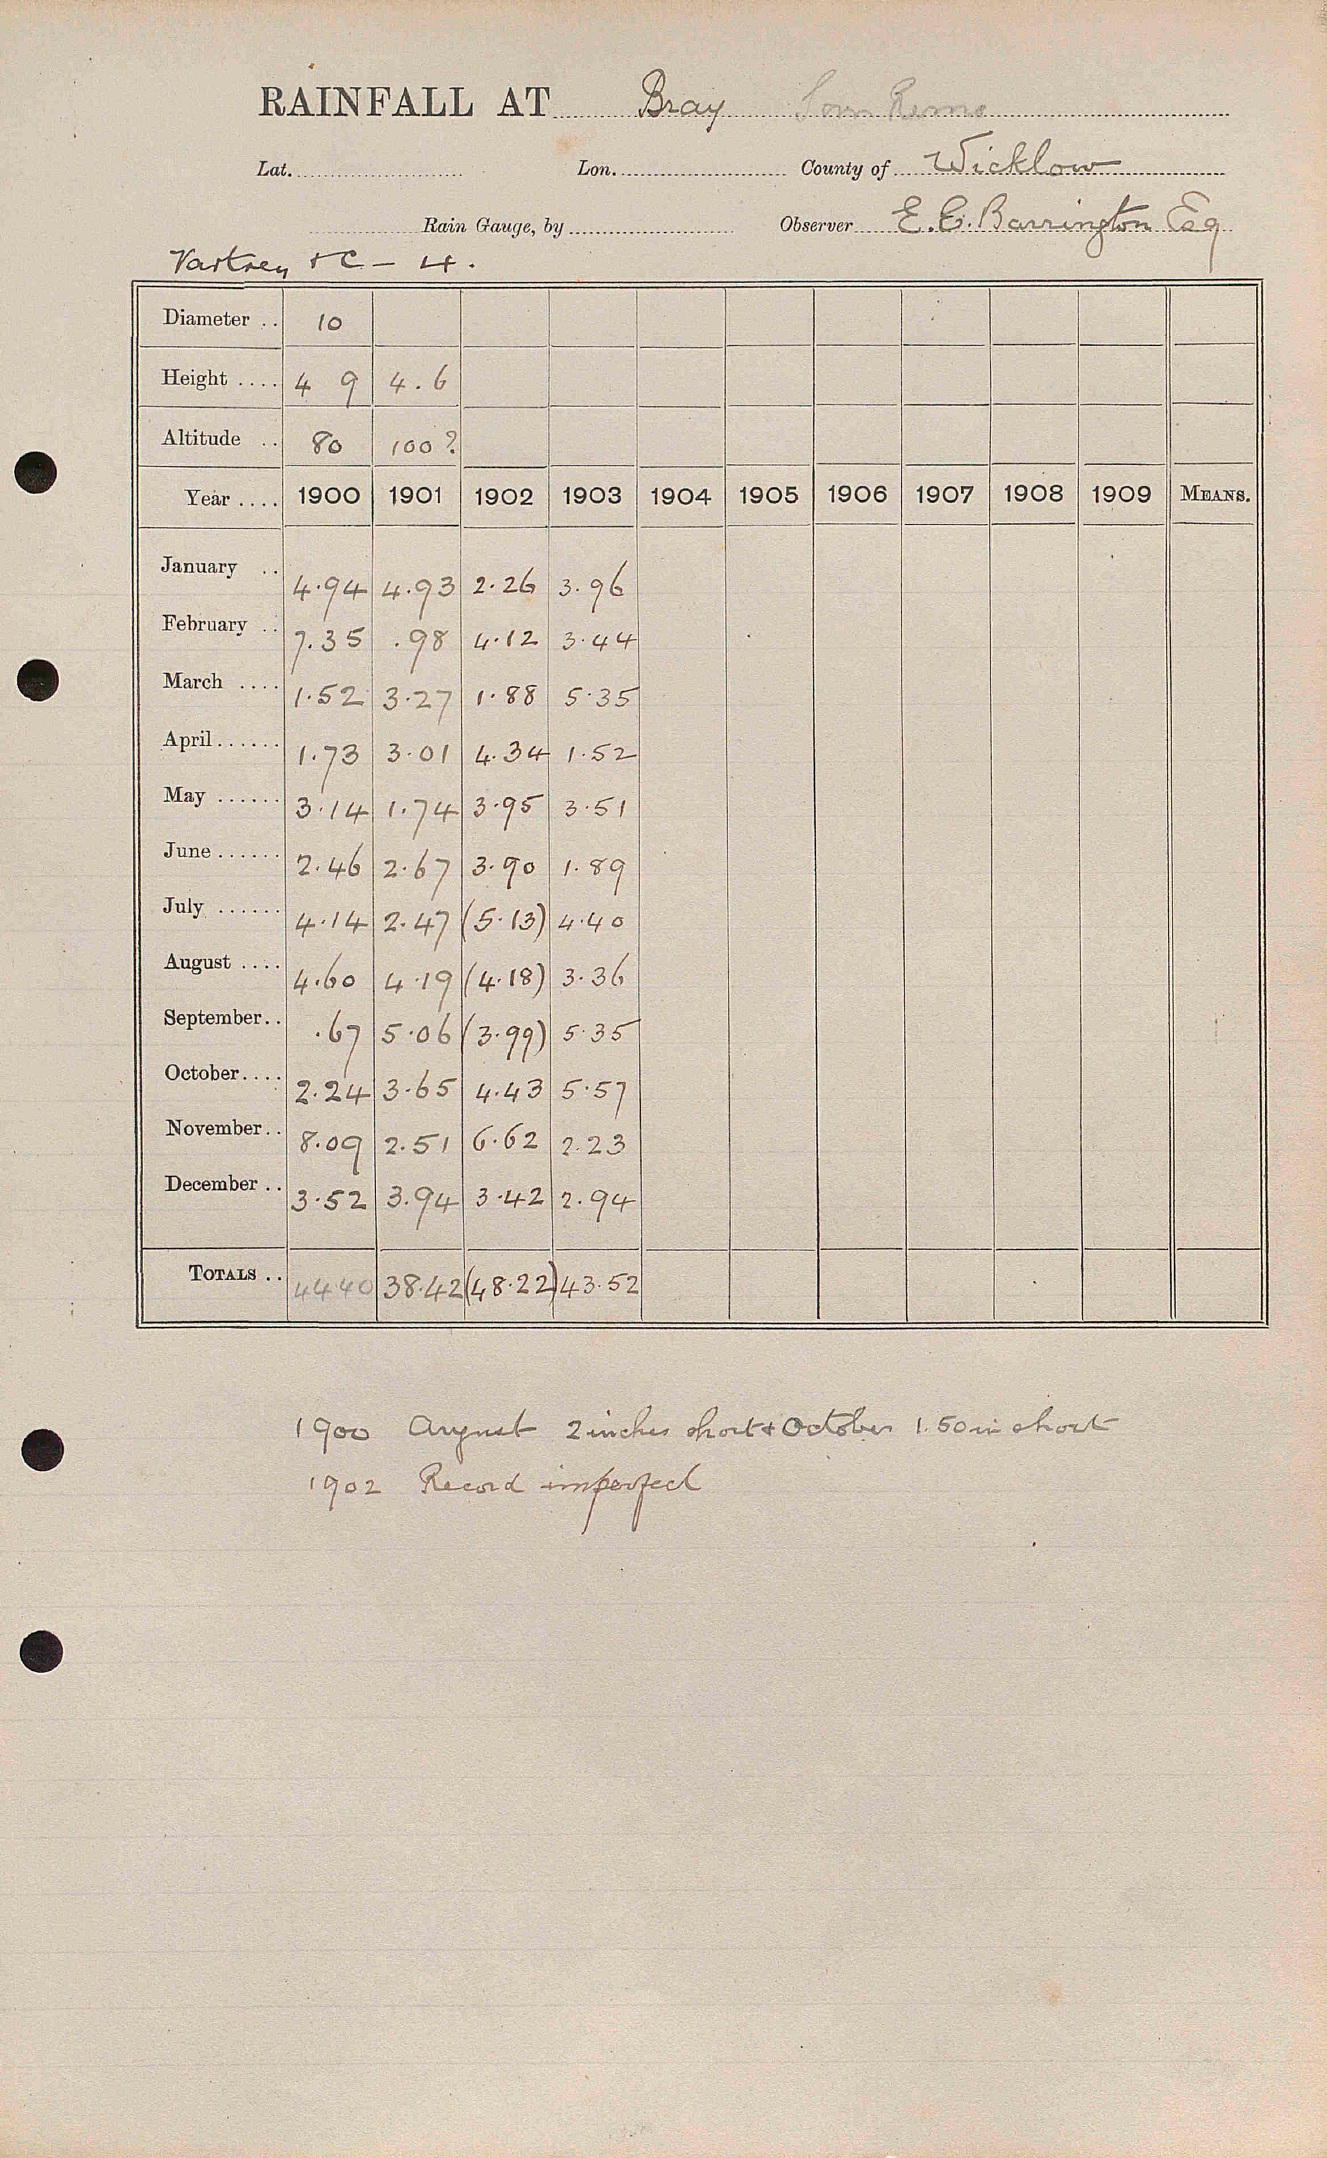 RAINFALL AT Bray
Lat. Lon. County of Wicklow
Rain Gauge, by Observer E. C. Barrington Esq
Vartrey & C - 4.
Diameter .. 10
Height .... 4 9 4.6
Altitude .. 80 100?
Year .... 1900 1901 1902 1903 1904 1905 1906 1907 1908 1909 MEANS.
January .. 4.94 4.93 2.26 3.96
February .. 7.35 .98 4.12 3.44
March .... 1.52 3.27 1.88 5.35
April ...... 1.73 3.01 4.34 1.52
May ...... 3.14 1.74 3.95 3.51
June ...... 2.46 2.67 3.90 1.89
July ...... 4.14 2.47 (5.13) 4.40
August .... 4.60 4.19 (4.18) 3.36
September.. .67 5.06 (3.99) 5.35
October.... 2.24 3.65 4.43 5.57
November.. 8.09 2.51 6.62 2.23
December .. 3.52 3.94 3.42 2.94
TOTALS .. 44.40 38.42 (48.22) 43.52
1900 August 2 inches short & October 1.50 in short
1902 Record imperfect